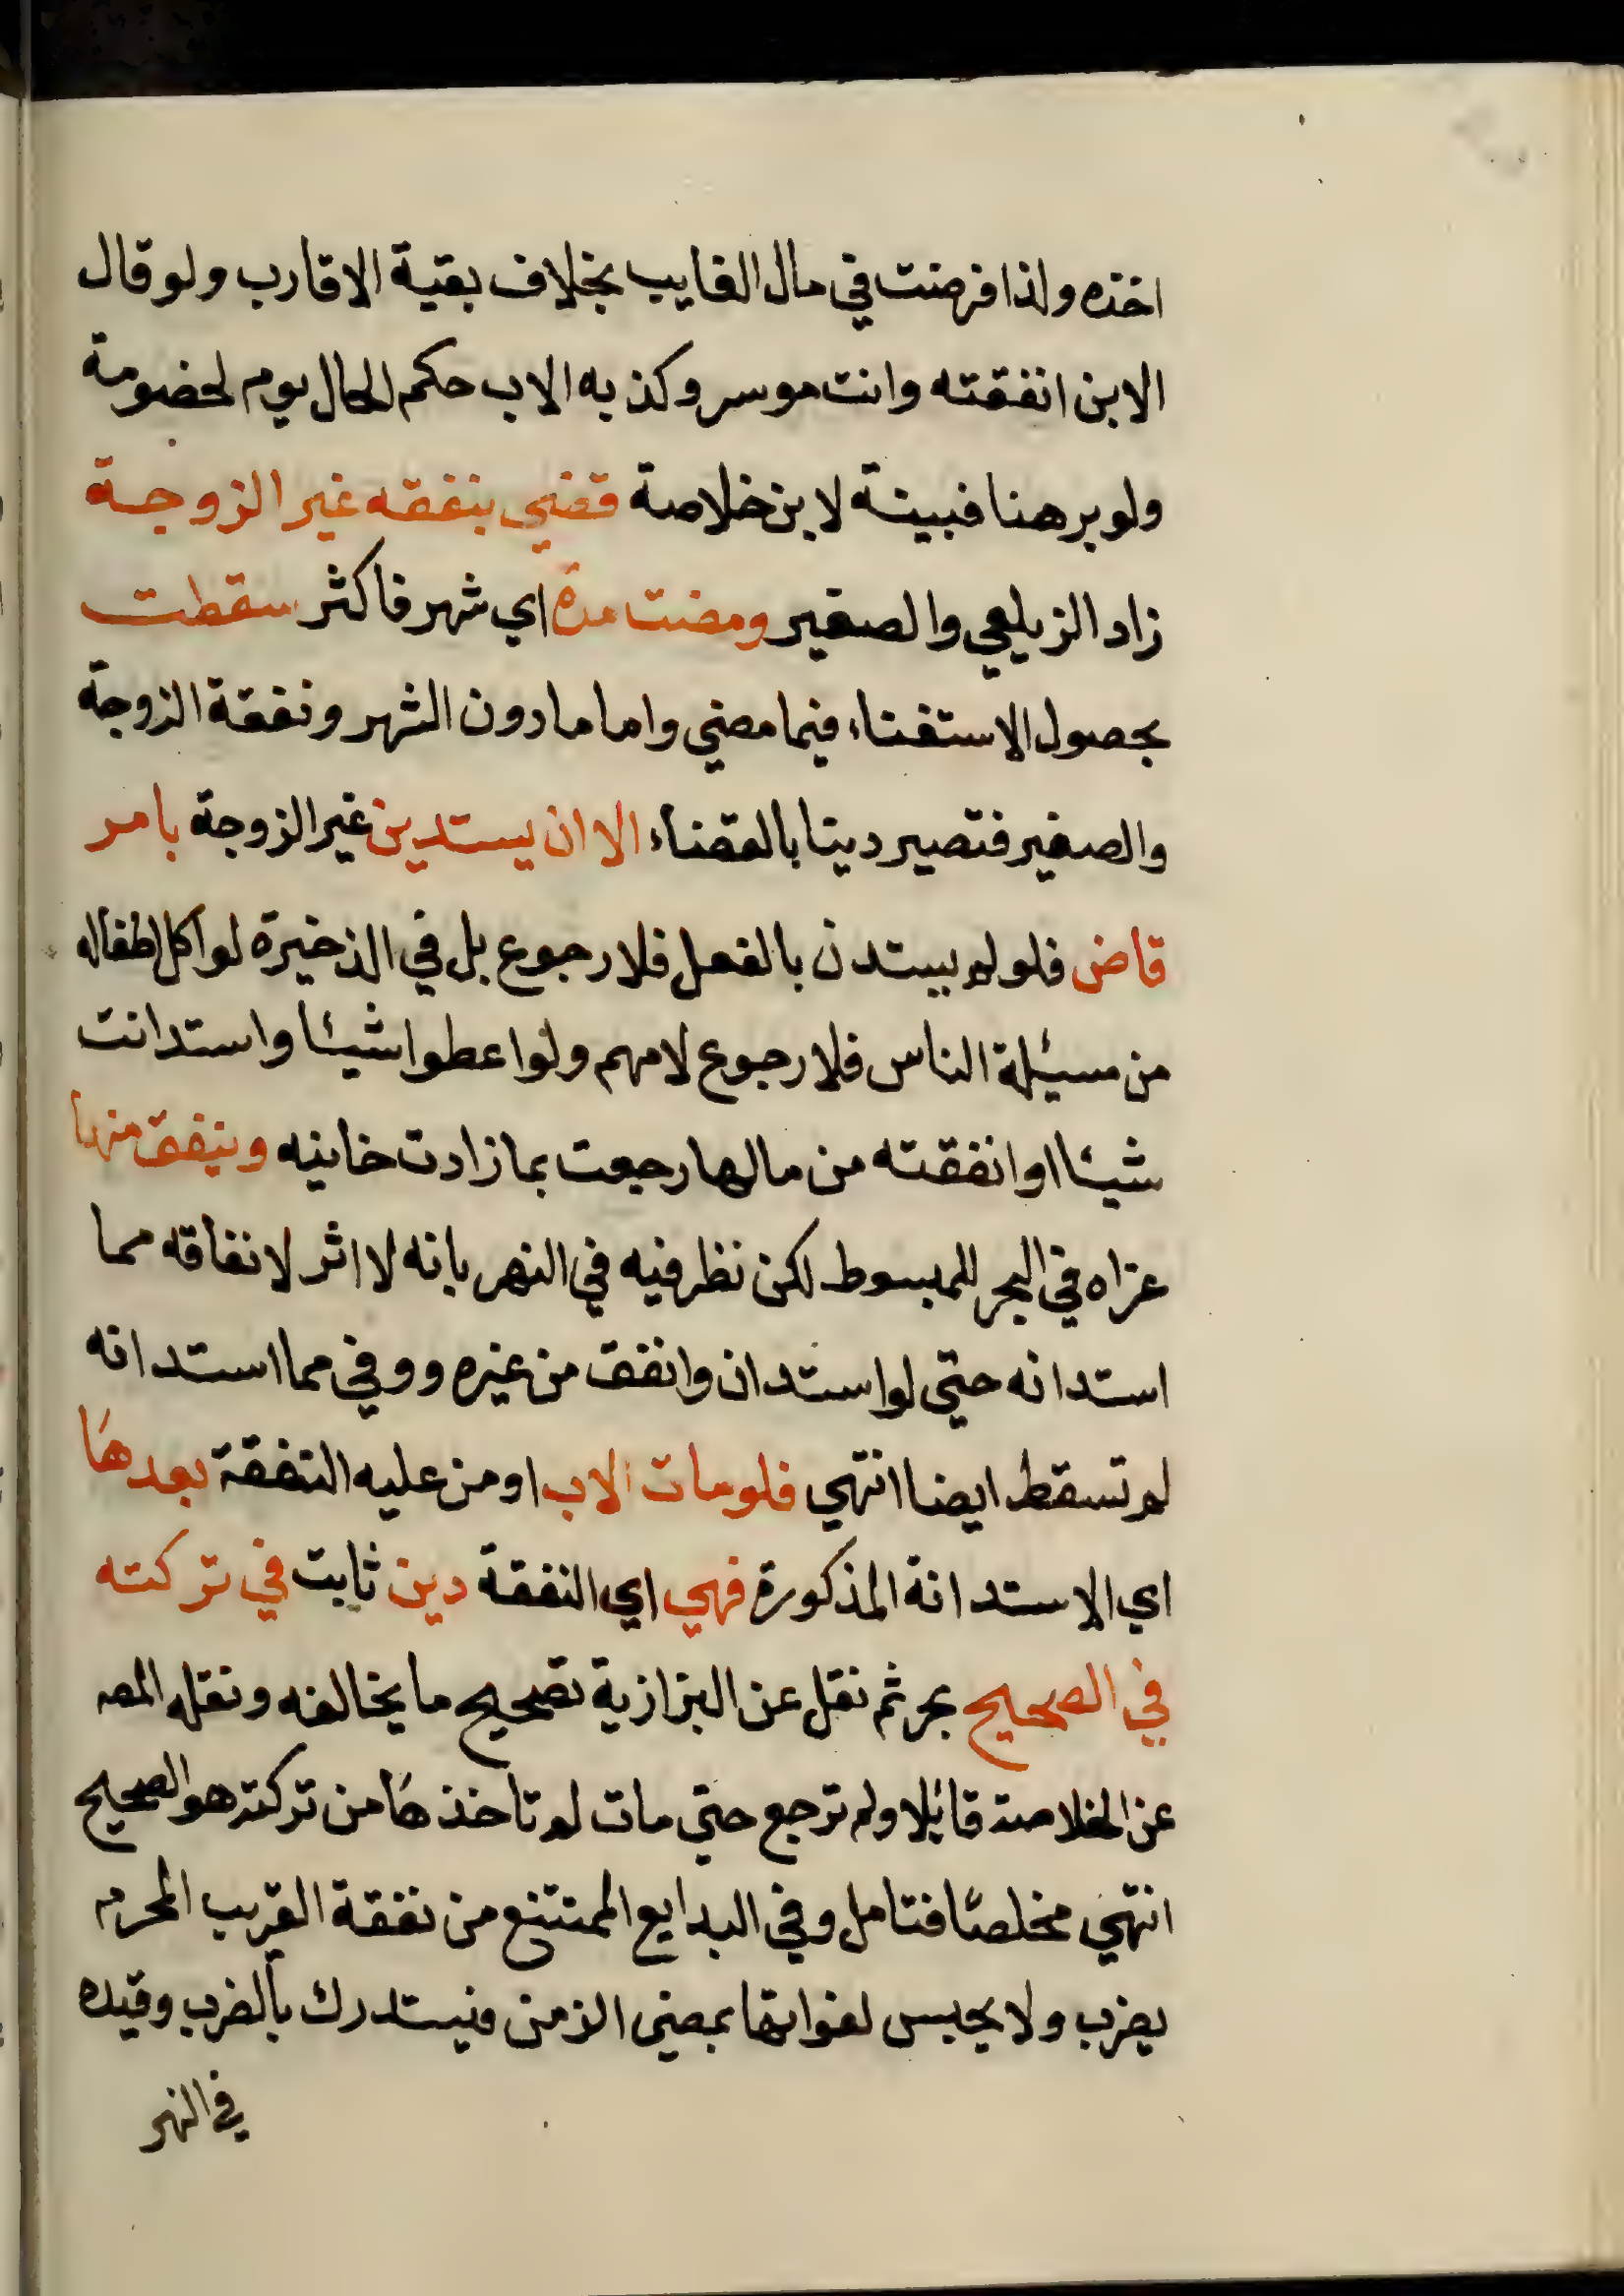 اخذه ولذا فرضت في مال الغايب بخلاف بقية الاقارب ولو قال
الابن انفقته وانت موسر وكذبه الاب حكم الحال يوم لخضومة
ولو برهنا فبينة لابن خلاصة قضي بنفقه غير الزوجة
زاد الزيلعي والصغير ومضت مدة اي شهر فاكثر سقطت
بحصول الاستغناء فيما مضي واما ما دون الشهر ونفقة الزوجة
والصغير فتصير دينا بالقضاء الا ان يستدين غير الزوجة بامر
قاض فلو لم يستدن بالفعل فلا رجوع بل في الذخيرة لو اكل اطفاله
من مسيئلة الناس فلا رجوع لامهم ولو اعطوا شيئا واستدانت
شيئا او انفقته من مالها رجعت بما زادت خانيه وينفق منها
عزاه في البحر للمبسوط لكن نظر فيه في النهر بانه لا اثر لانفاقه مما
استدانه حتي لو استدان وانفق من غيره ووفي مما استدانه
لم تسقط ايضا انتهي فلو مات الاب او من عليه النفقة بعدها
اي الاستدانة المذكورة فهي اي النفقة دين ثابت في تركته
في الصحيح بحر ثم نقل عن البزازية تصحيح ما يخالفه ونقله المصه
عن الخلاصة قائلا ولم ترجع حتي مات لم تاخذها من تركته هو الصحيح
انتهي مخلصا فتامل وفي البدايع الممتنع من نفقة القريب المحرم
يضرب ولا يحبس لفواتها بمضي الزمن فيستدرك بالضرب وقيده
في النهر